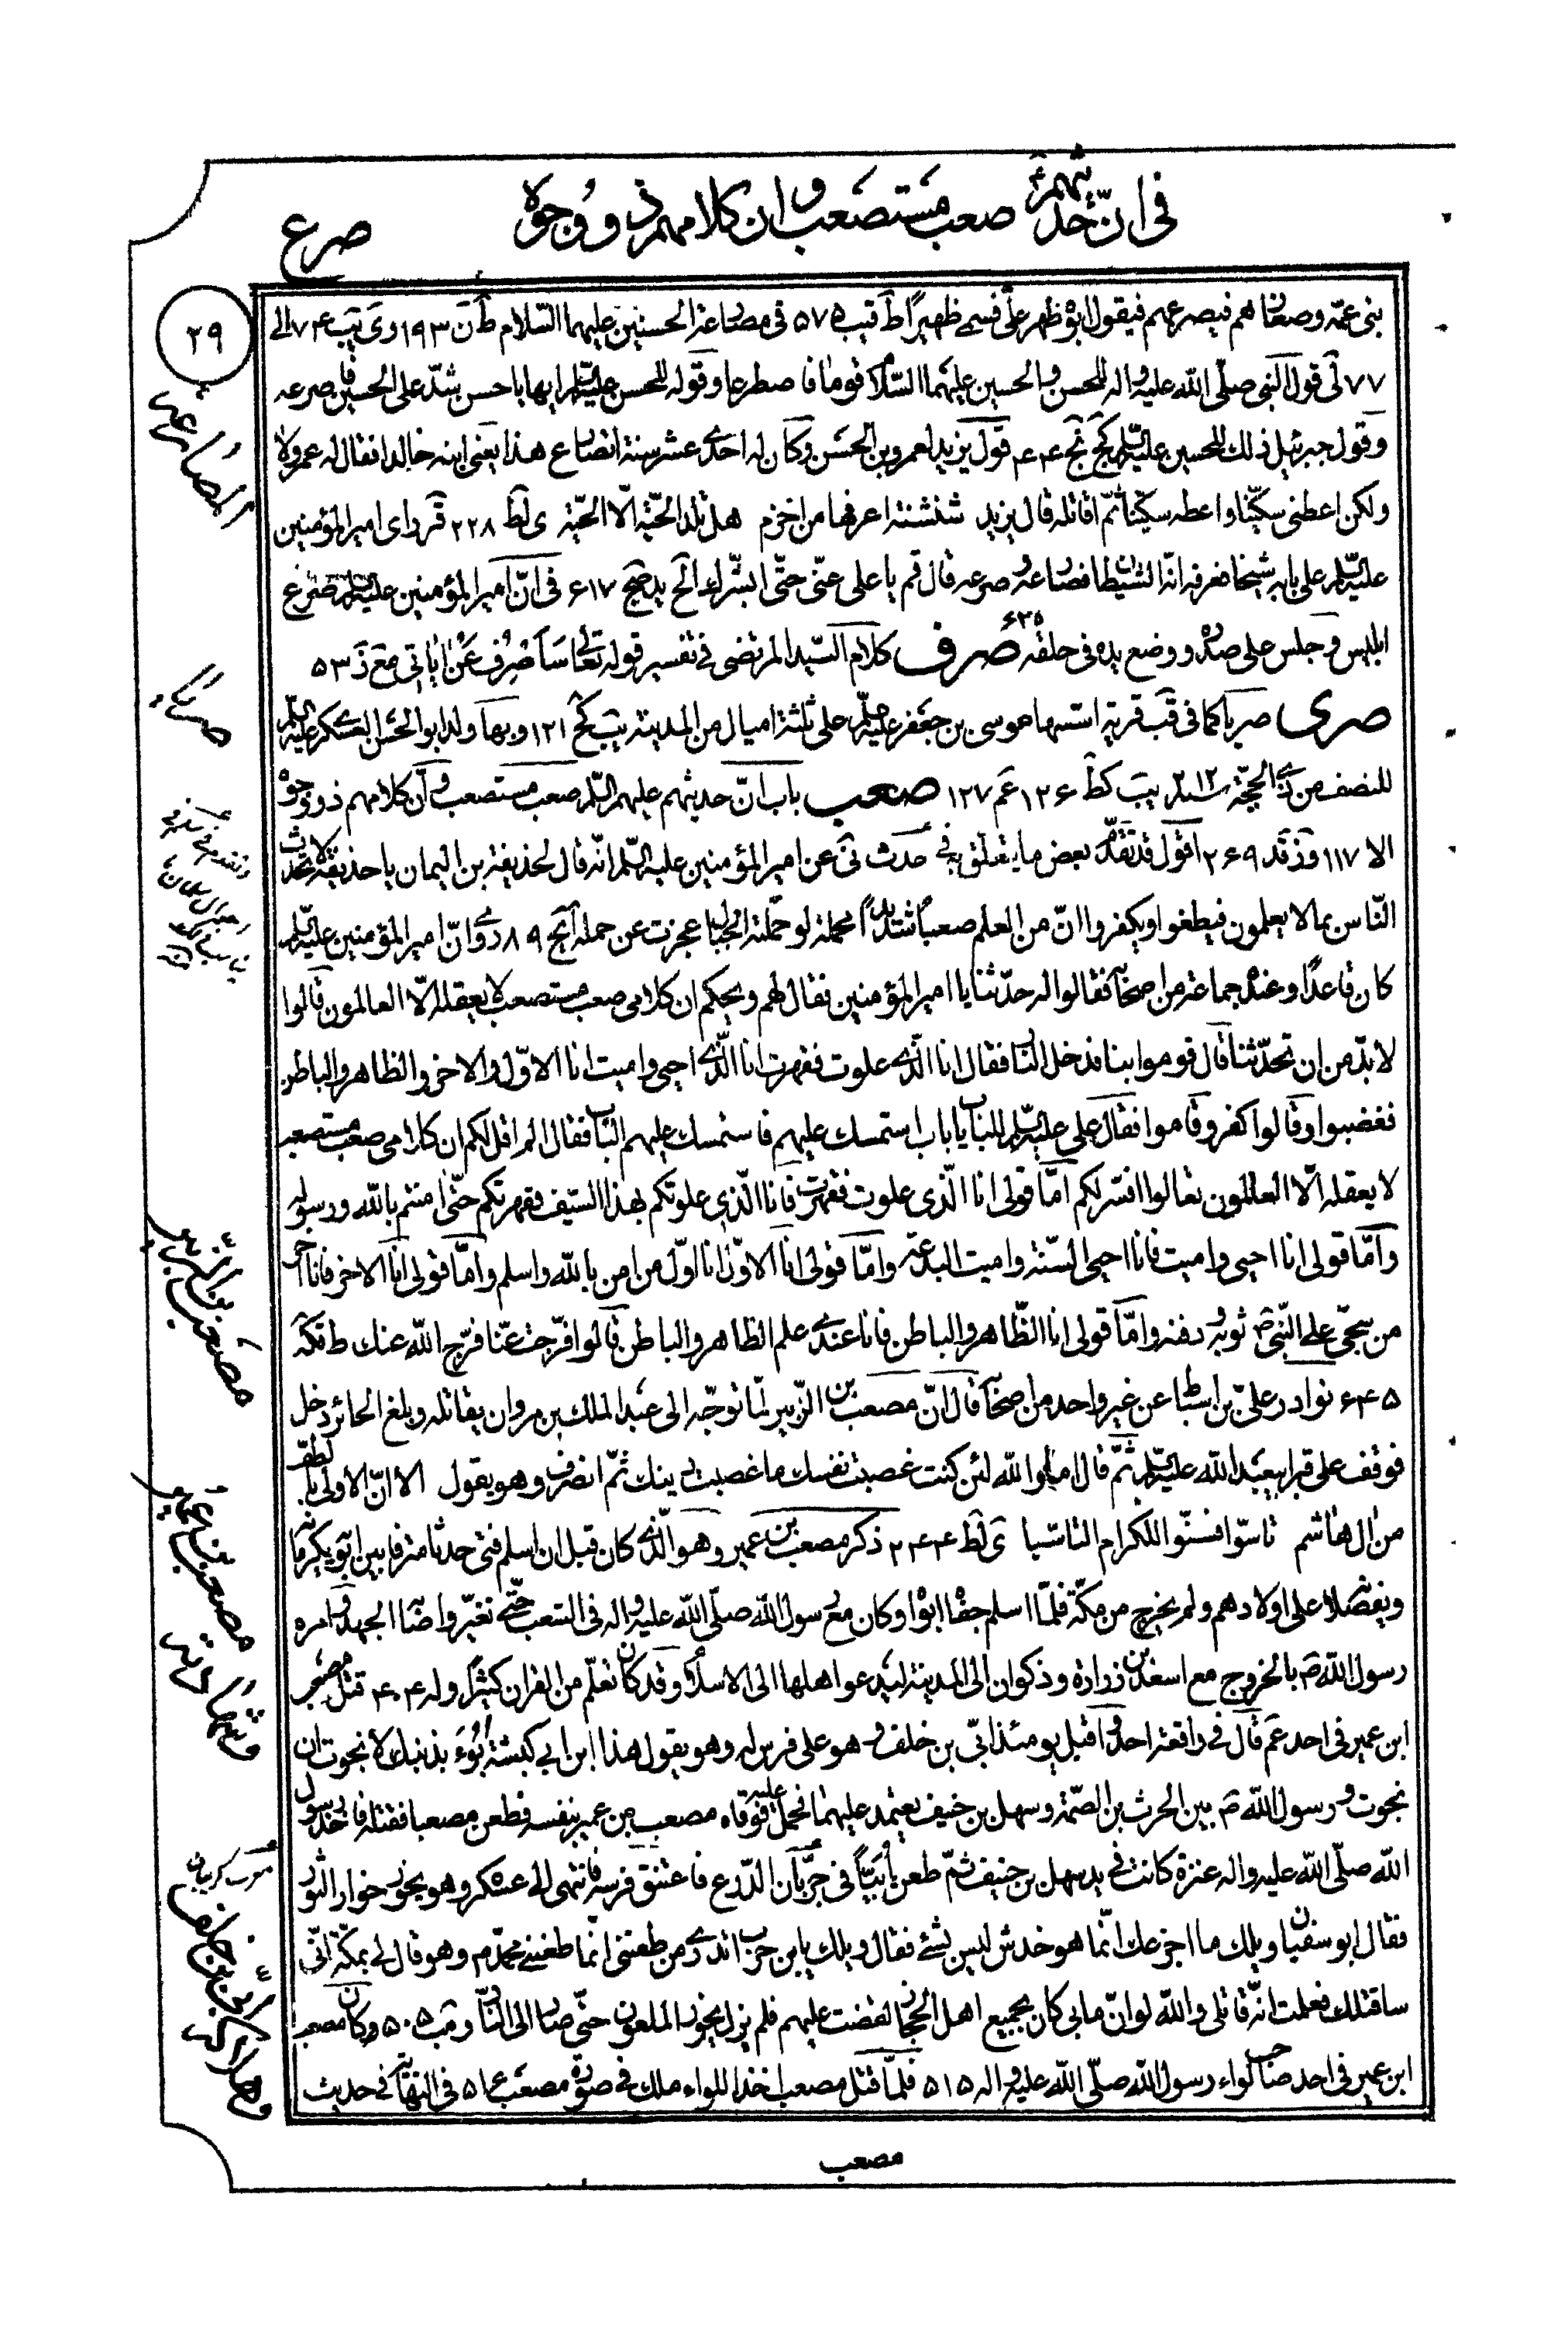 في انّ حديثهم صعب مستصعب وان كلامهم ذو وجوه
صرع
٢٩
بني عمّه وصغارهم فيصرعهم فيقول ابوه ظهر علي فسمي ظهيراً ط قيب ٥٧٥ في مصارعة الحسنين عليهما السّلام ط ن ١٩٣ وى يب ٧٤ الى
٧٧ لى قول النبي صلّى الله عليه واله للحسن والحسين عليهما السّلام قوما فاصطرعا وقوله للحسن عليه السّلم ايها يا حسن شدّ على الحسين فاصرعه
وقول جبرئيل ذلك للحسين عليه السّلم كج نج ٢٤٤ قول يزيد لعمرو بن الحسن وكان له احدى عشر سنة اتصارع هذا يعني ابنه خالدا فقال له عمرو لا
ولكن اعطني سكّينا واعطه سكّينا ثمّ اقاتله قال يزيد شنشنة اعرفها من اخزم هل تلد الحيّة الّا الحيّة ى لط ٢٢٨ قر راى امير المؤمنين
عليه السّلم على بابه شيخا فعرفه انّه الشيطان فصارعه وصرعه قال قم يا علي عنّي حتّى ابشّرك الخ يد صج ٦١٧ في انّ امير المؤمنين عليه السّلم صرع
ابليس وجلس على صدره ووضع يده في حلقه ٦٣٥ صرف كلام السيّد المرتضى في تفسير قوله تعالى سَاَصْرِفُ عَنْ اٰيَاتِي مع ذ ٥٣
صرى صريا كما في قب قرية اسّسها موسى بن جعفر عليه السّلم على ثلثة اميال من المدينة يب كح ١٢١ وبها ولد ابو الحسن العسكري عليه السّلم
للنصف من ذي الحجّة ٢١٢ يب كط ١٢٦ عم ١٢٧ صعب باب انّ حديثهم عليهم السّلم صعب مستصعب وانّ كلامهم ذو وجوه
الا ١١٧ وز قد ٢٦٩ اقول قد تقدّم بعض ما يتعلّق به في حدث نى عن امير المؤمنين عليه السّلم انّه قال لحذيفة بن اليمان يا حذيفة لا تحدّث
النّاس بما لا يعلمون فيطغوا ويكفروا انّ من العلم صعباً شديداً محمله لو حمّلته الجبال عجزت عن حمله ا يج ٨٩ روى انّ امير المؤمنين عليه السّلم
كان قاعدًا وعنده جماعة من اصحابه فقالوا له حدّثنا يا امير المؤمنين فقال لهم ويحكم ان كلامي صعب مستصعب لا يعقله الّا العالمون قالوا
لا بدّ من ان تحدّثنا قال قوموا بنا فدخل الدار فقال انا الّذي علوت فقهرت انا الّذي احيي واميت انا الاوّل والاخر والظاهر والباطن
فغضبوا وقالوا كفر وقاموا فقال علي عليه السّلم للباب يا باب استمسك عليهم فاستمسك عليهم الباب فقال الم اقل لكم ان كلامي صعب مستصعب
لا يعقله الّا العالمون تعالوا افسّر لكم امّا قولي انا الّذي علوت فقهرت فانا الّذي علوتكم بهذا السّيف فقهرتكم حتّى امنتم بالله ورسوله
وامّا قولي انا احيي واميت فانا احيي السّنّة واميت البدعة وامّا قولي انا الاوّل فانا اوّل من امن بالله واسلم وامّا قولي انا الاخر فانا اخر
من سجّى على النّبي ص ثوبه ودفنه وامّا قولي انا الظّاهر والباطن فانا عندي علم الظاهر والباطن قالوا فرّجت عنّا فرّج الله عنك ط قكه
٦٤٥ نوادر عليّ بن اسباط عن غير واحد من اصحابه قال انّ مصعب بن الزّبير لمّا توجّه الى عبد الملك بن مروان يقاتله وبلغ الحائر دخل
فوقف على قبر ابيعبد الله عليه السّلم ثمّ قال اما والله لئن كنت غصبت نفسك ما غصبت دينك ثمّ انصرف وهو يقول الا انّ الاولى بالطّف
من ال هاشم تاسّوا فسنّوا للكرام التاسّيا ى لط ٢٤٤ ذكر مصعب بن عمير وهو الّذي كان قبل ان اسلم فتى حدثا مترفا بين ابويه يكرمانه
ويفضّلانه على اولادهم ولم يخرج من مكّة فلمّا اسلم جفاه ابواه وكان مع رسول الله صلّى الله عليه واله في الشعب حتّى تغيّر واصابه الجهد وامره
رسول الله ص بالخروج مع اسعد بن زرارة وذكوان الى المدينة ليدعوا اهلها الى الاسلام وقد كان تعلّم من القران كثيرًا وله ٤٠٤ قتل مصعب
ابن عمير في احد عم قال في واقعة احد واقبل يومئذ ابيّ بن خلف وهو على فرس له وهو يقول هذا ابن ابي كبشة بُوءَ بذنبك لا نجوت ان
نجوت ورسول الله ص بين الحرث بن الصّمّة وسهل بن حنيف يعتمد عليهما فحمل عليه فوقاه مصعب بن عمير بنفسه فطعن مصعبا فقتله فاخذ رسول
الله صلّى الله عليه واله عنزة كانت في يد سهل بن حنيف ثمّ طعن اُبَيّاً في جُرُبّان الدّرع فاعتنق فرسه فانتهى الى عسكره وهو يخور خوار الثور
فقال ابو سفيان ويلك ما اجزعك انّما هو خدش ليس بشئ فقال ويلك يابن حرب اتدري من طعنني انّما طعنني محمّد ص وهو قال لي بمكّة انّي
ساقتلك فعلمت انّه قاتلي والله لو انّ ما بي كان بجميع اهل الحجاز لقضت عليهم فلم يزل يخور الملعون حتّى صار الى النّار و مب ٥٠٥ وكان مصعب
ابن عمير في احد صاحب لواء رسول الله صلّى الله عليه واله ٥١٥ فلمّا قتل مصعب اخذ اللواء ملك في صورة مصعب ع ٥١ في النهاية في حديث
مصعب
المصارعة
صريا
مصعب بن الزبير
مصعب بن عمير
وشهادته
ابي بن خلف
وهلاكه